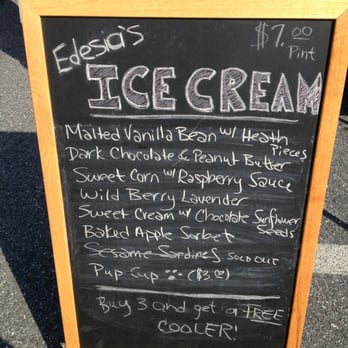 Edesia's
$7.00
Pint
ICE CREAM
Malted Vanilla Bean w/ Heath Pieces
Dark Chocolate & Peanut Butter
Sweet Corn w/ Raspberry Sauce
Wild Berry Lavender
Sweet Cream w/ Chocolate Sunflower Seeds
Baked Apple Sorbet
Sesame Sardines SOLD OUT
Pup Cup ($3.00)
Buy 3 and get a FREE
COOLER!